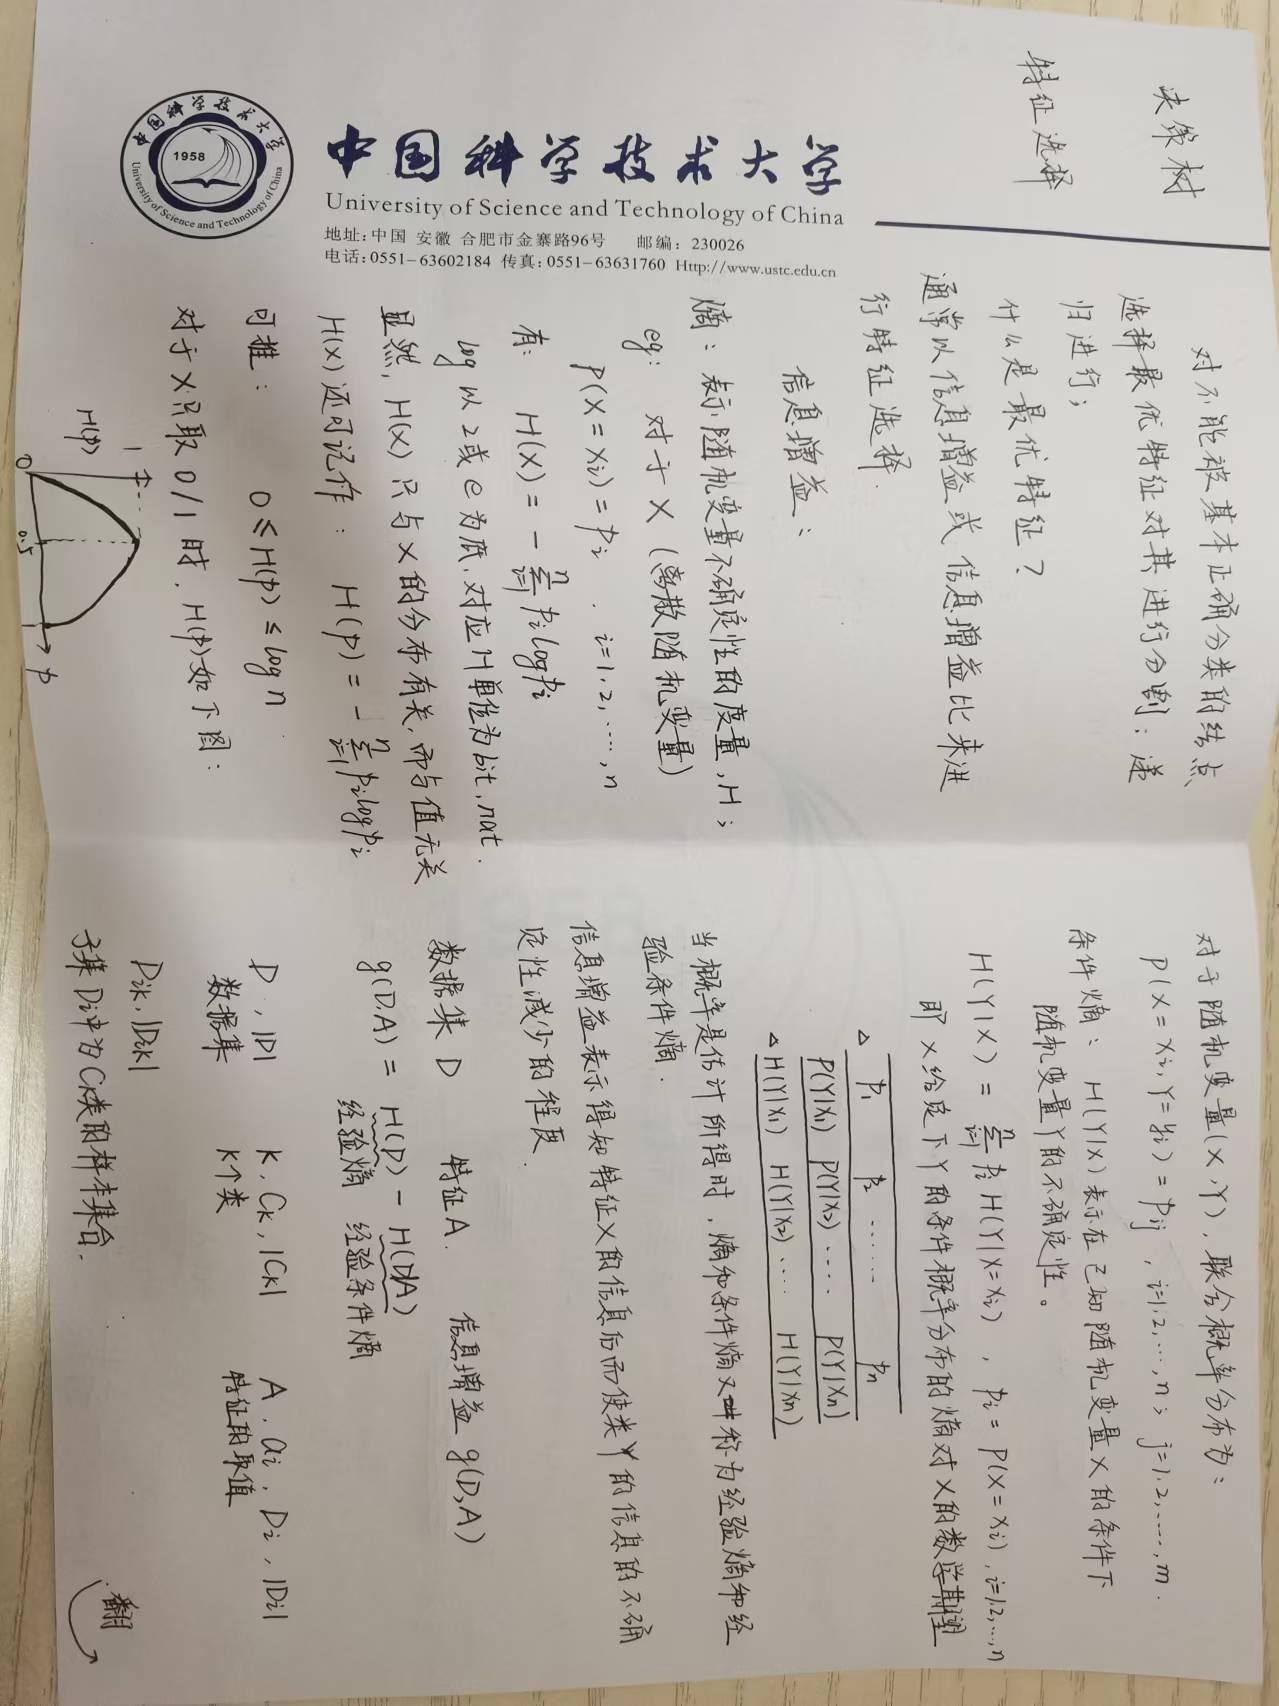 中国科学技术大学
University of Science and Technology of China
地址:中国 安徽 合肥市金寨路96号 邮编:230026
电话:0551-63602184 传真:0551-63631760 Http://www.ustc.edu.cn
中国科学技术大学
1958
University of Science and Technology of China
决策树
特征选择
对不能被基本正确分类的结点
选择最优特征对其进行分割;递
归进行;
什么是最优特征?
通常以信息增益或信息增益比来进
行特征选择.
信息增益:
熵:表示随机变量不确定性的度量,H;
eg: 对于X(离散随机变量)
P(X=xi)=pi, i=1,2,…,n
有: H(X)=-∑(i=1 n) pi log pi
log以2或e为底,对应H单位为bit,nat.
显然,H(X)只与X的分布有关,而与值无关
H(X)还可记作: H(p)=-∑(i=1 n) pi log pi
可推: 0≤H(p)≤log n
对于X只取0/1时,H(p)如下图:
H(p)
1
0
0.5
p
对于随机变量(X,Y),联合概率分布为:
P(X=xi,Y=yi)=pij, i=1,2,…,n; j=1,2,…,m.
条件熵:H(Y|X)表示在已知随机变量X的条件下
随机变量Y的不确定性。
H(Y|X)=∑(i=1 n) pi H(Y|X=xi), pi=P(X=xi),i=1,2,…,n
即X给定下Y的条件概率分布的熵对X的数学期望
△ p1 p2 …… pn
P(Y|X1) P(Y|X2) …. P(Y|Xn)
△ H(Y|X1) H(Y|X2) …. H(Y|Xn)
当概率是估计所得时,熵和条件熵又称为经验熵和经
验条件熵.
信息增益表示得知特征X的信息后而使类Y的信息的不确
定性减少的程度.
数据集D 特征A. 信息增益 g(D,A)
g(D,A)=H(D)-H(D|A)
经验熵 经验条件熵
D,|D| K,Ck,|Ck| A,ai,Di,|Di|
数据集 K个类 特征的取值
Dik,|Dik|
子集Di中为Ck类的样本集合.
翻